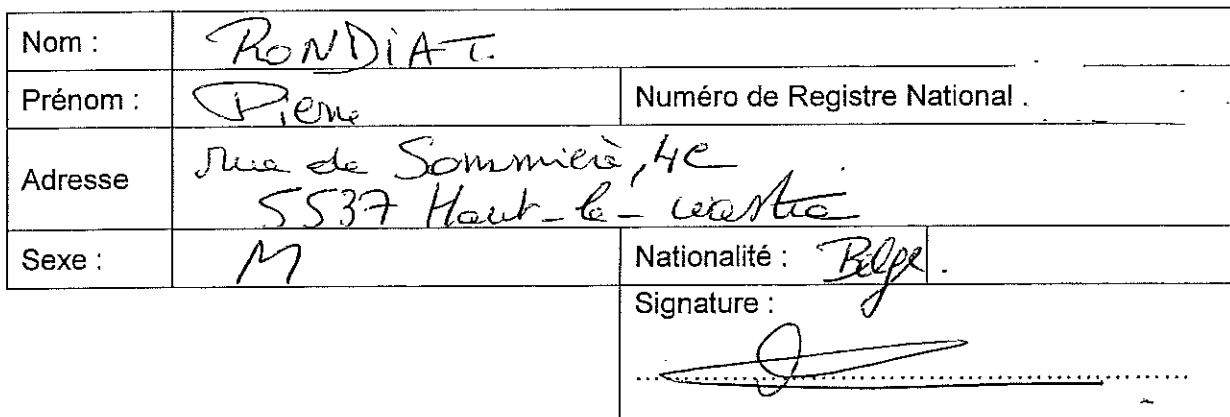 Nom : RONDIAT.
Prénom : Pierre Numéro de Registre National .
Adresse rue de Sommière, 4C
5537 Haut-le-wastia
Sexe : M Nationalité : Belge.
Signature :